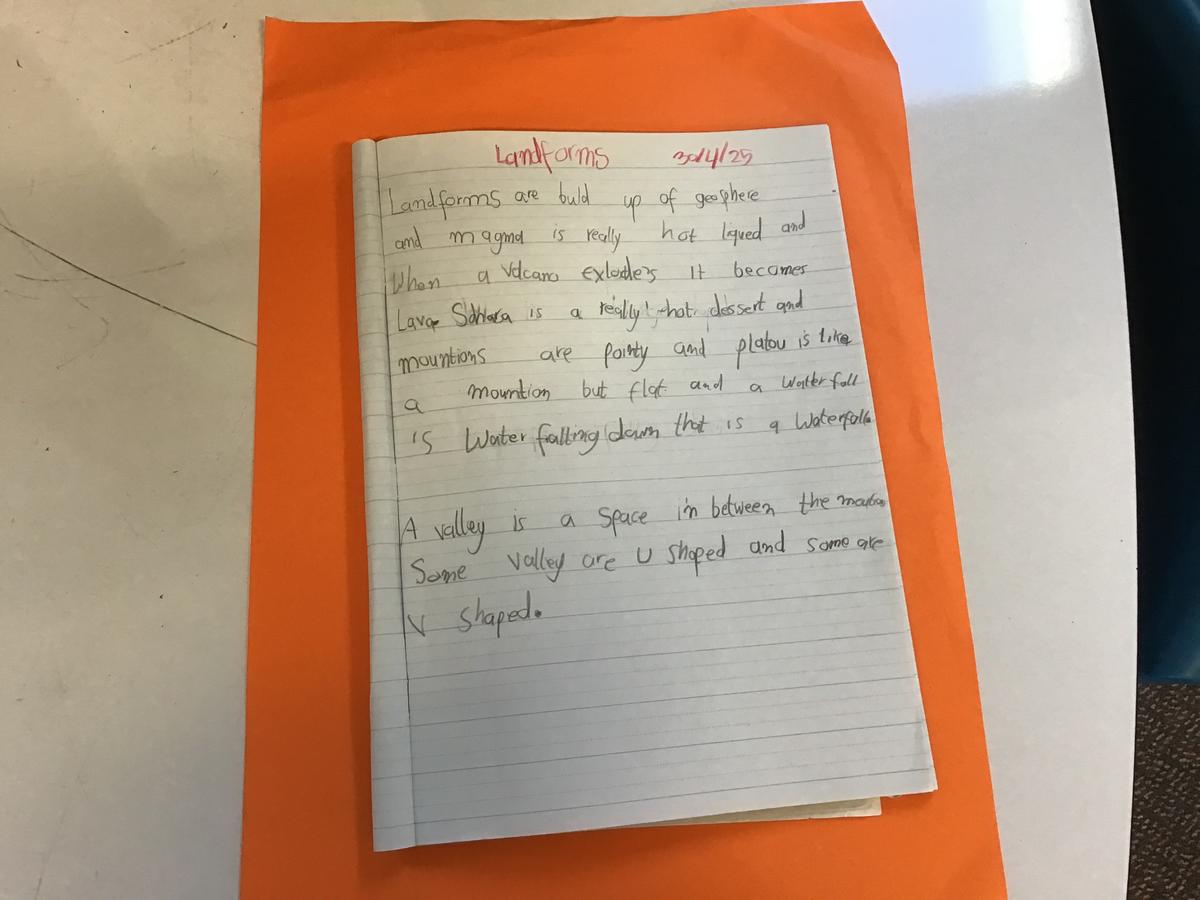 Landforms 30/4/25
Landforms are buld up of geosphere
and magma is really hot liqued and
When a Volcano exloders it becomes
Lava Sahara is a really hot dessert and
mountions are pointy and platou is like
a mountion but flat and a waterfall
is Water falling down that is a Waterfall
A valley is a Space in between the
Some valley are U shaped and some are
V shaped.